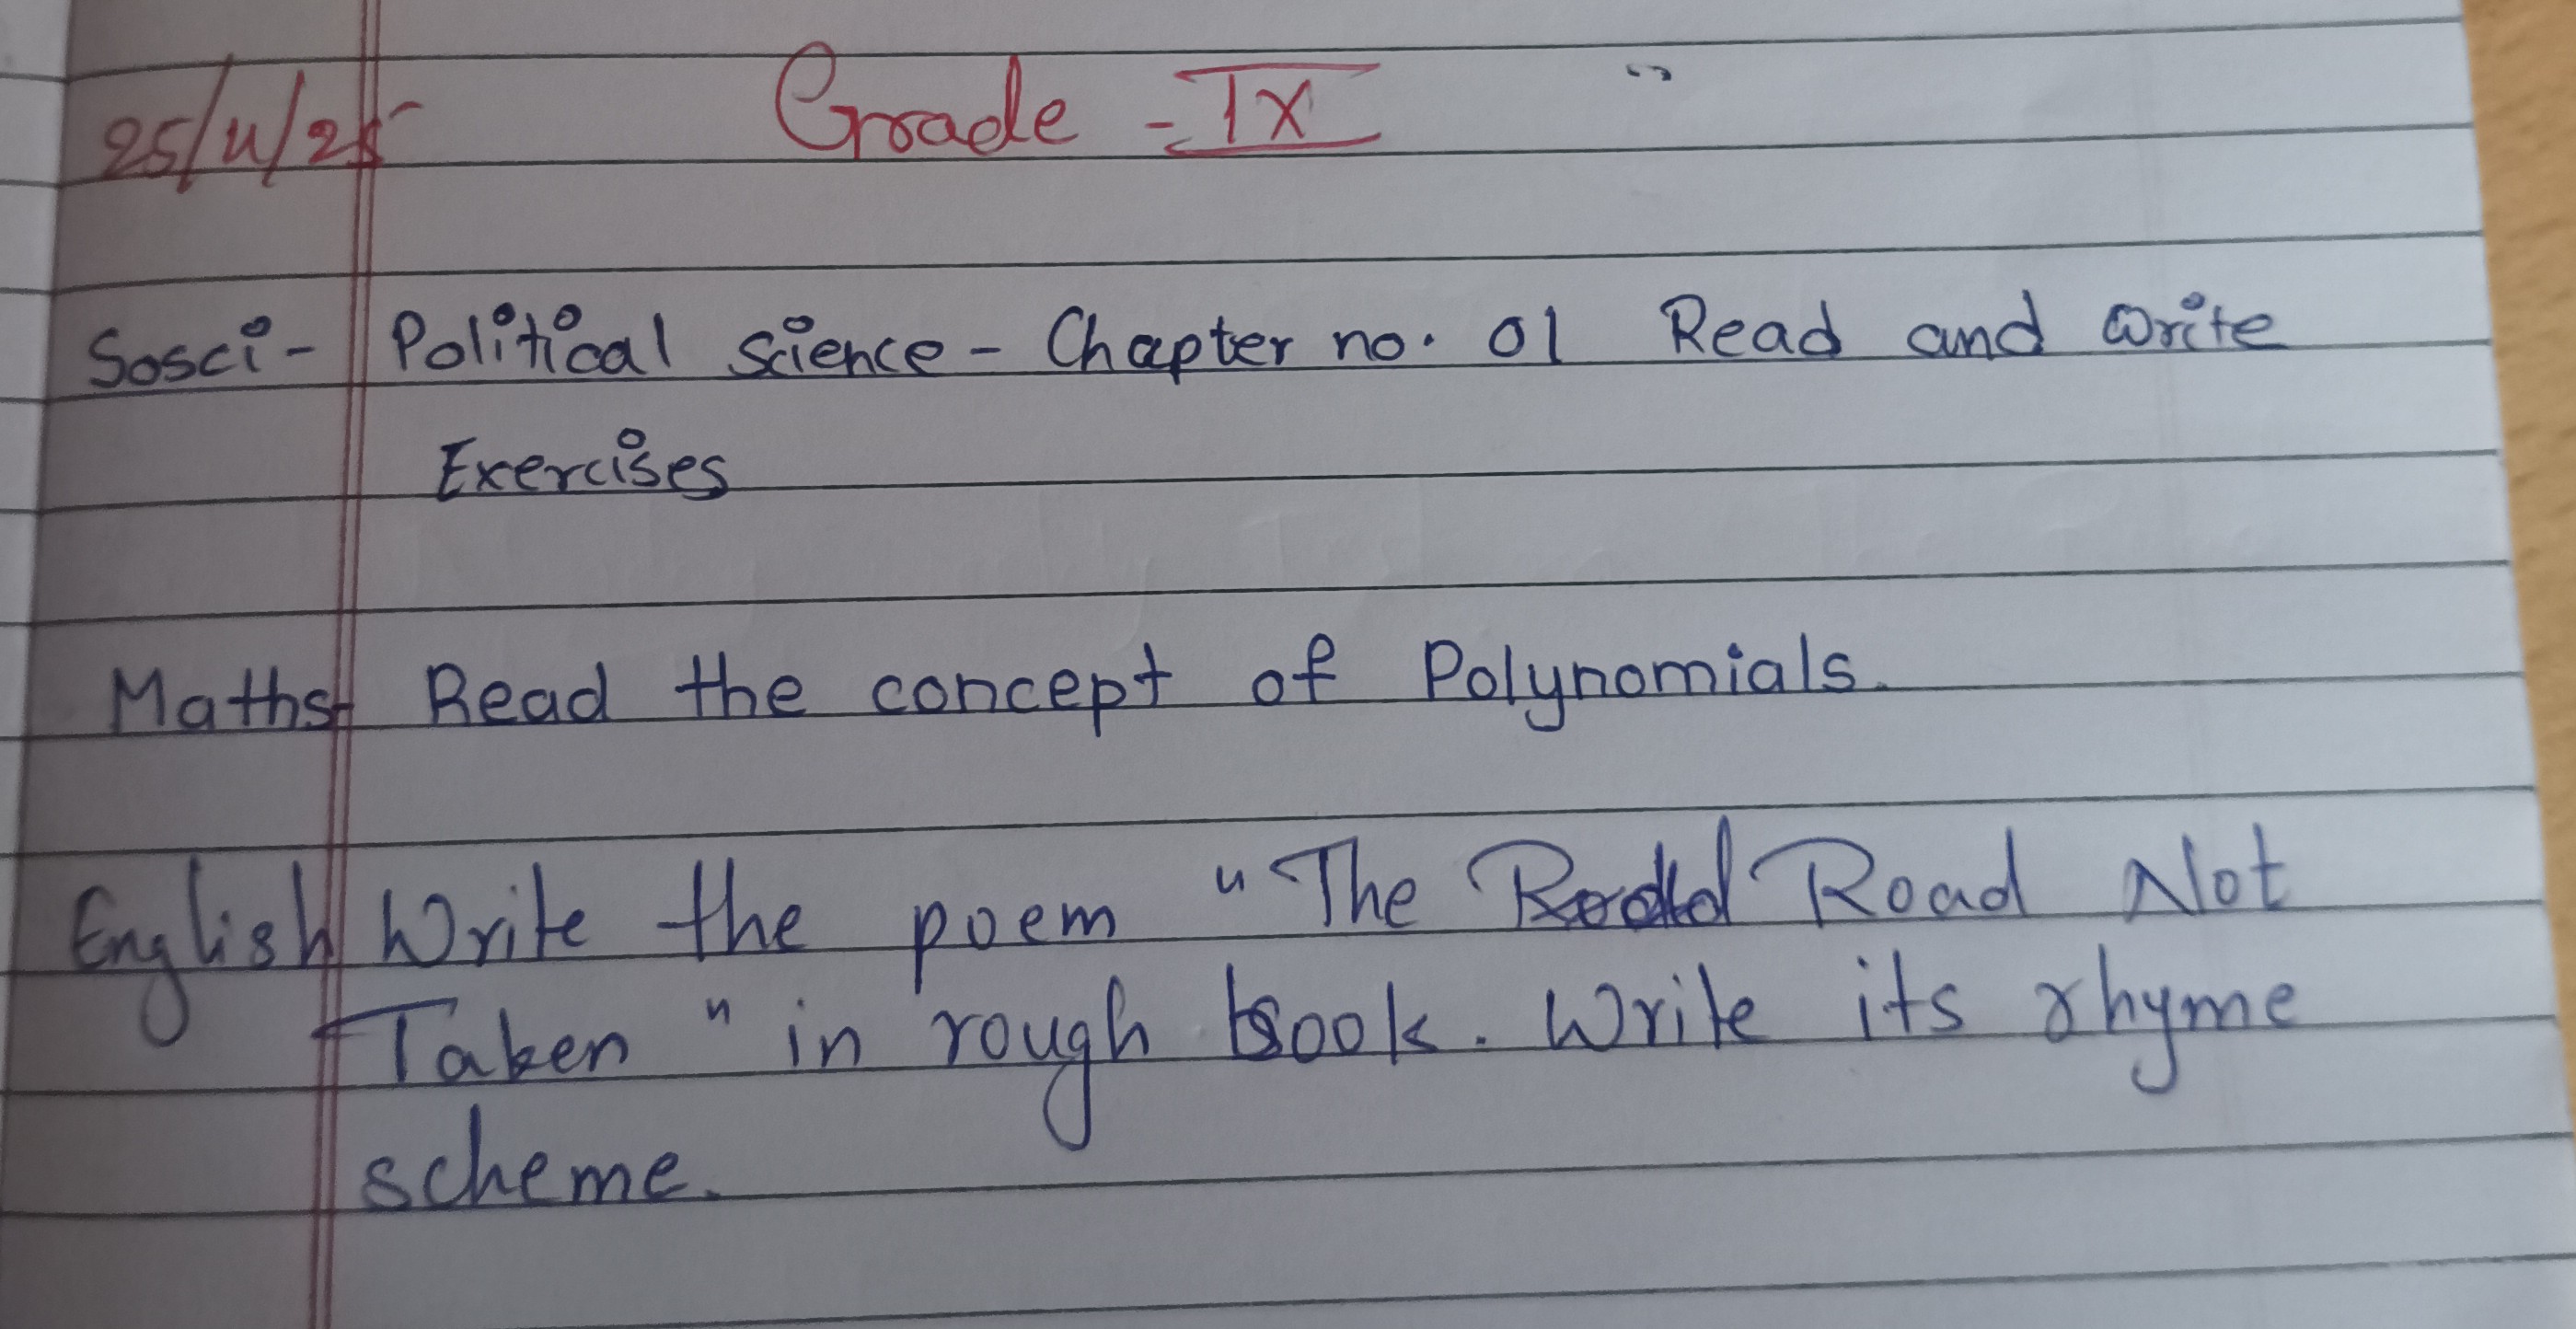 25/4/25 Grade - IX
Sosci- Political science - Chapter no. 01 Read and write
Exercises
Maths- Read the concept of Polynomials.
English Write the poem "The Road Not
Taken" in rough book. Write its rhyme
scheme.